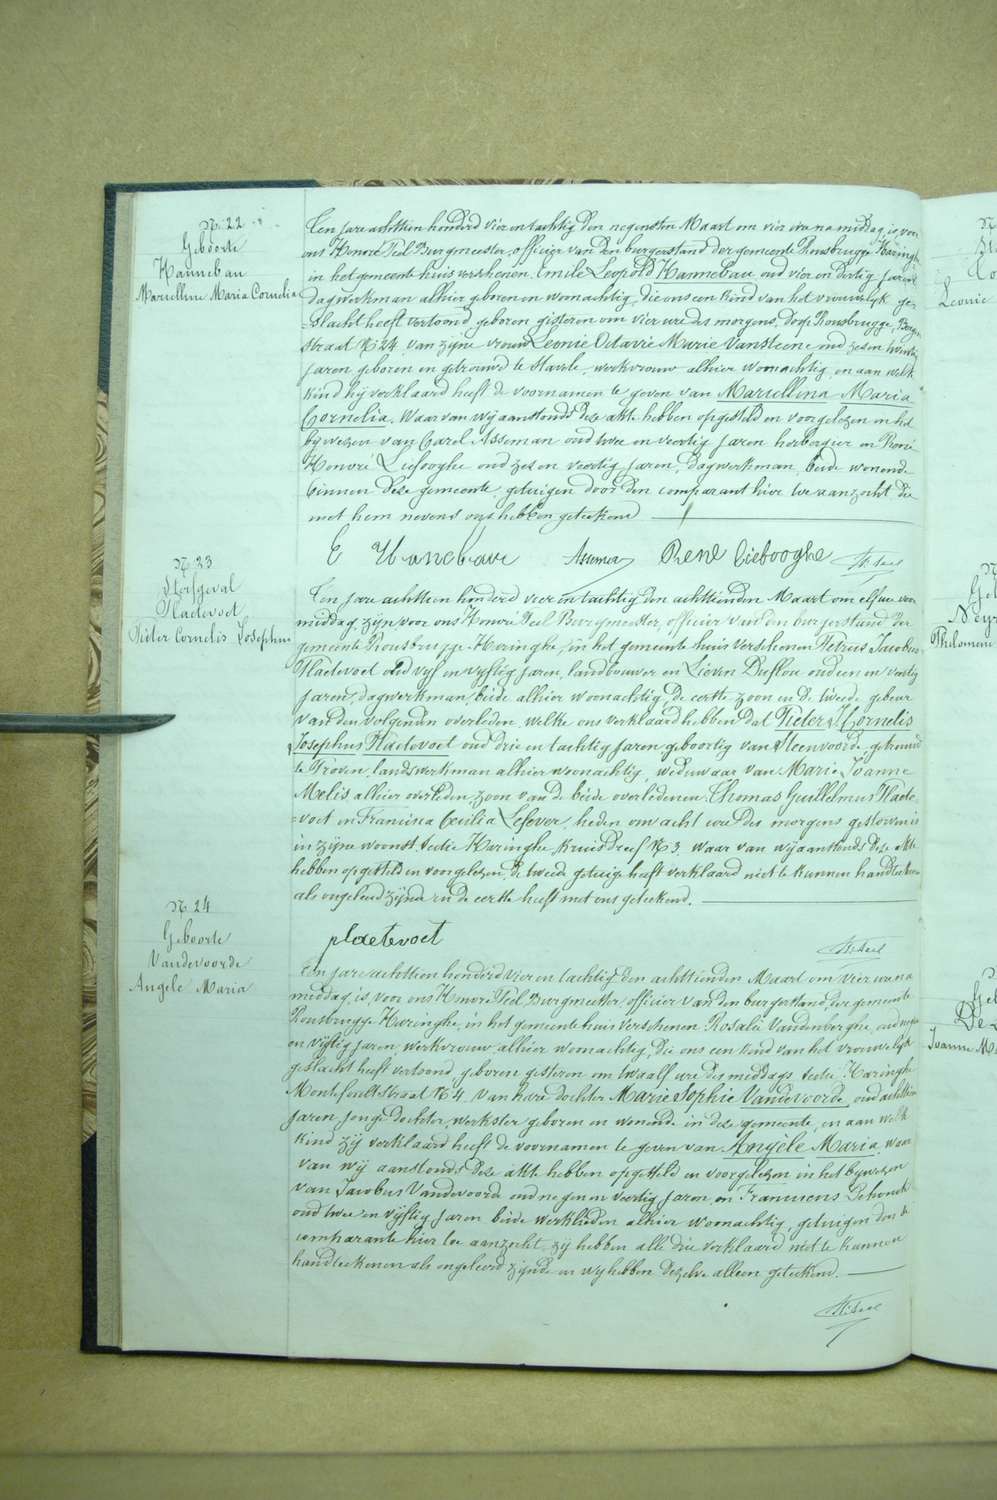 N. 22
Geboorte
Hannebau
Marcellina Maria Cornelia
Ten jare achttien honderd vier en tachtig den negensten Maart om vier ure namiddag, is voor
ons Honoré Teel Burgmeester, officier van den burgerstand der gemeente Rousbrugge-Haringhe
in het gemeente huis verschenen Emile Leopold Hannebau oud vier en dertig jaren
dagwerkman alhier geboren en woonachtig, die ons een kind van het vrouwelijk ge-
slacht heeft vertoond, geboren gisteren om vier ure des morgens, dorp Rousbrugge, Berg-
straat N. 24. van zijne vrouw Leonie Octavie Marie Vansteene oud zes en twintig
jaren geboren en getrouwd te Stavele, werkvrouw alhier woonachtig, en aan welk
kind hij verklaard heeft de voornamen te geven van Marcellina Maria
Cornelia, Waar van wij aanstonds deze akte hebben opgesteld en voorgelezen in het
bijwezen van Carel Asseman oud twee en veertig jaren herbergier en René
Honoré Liebooghe oud zes en veertig jaren, dagwerkman, beide wonende
binnen deze gemeente, getuigen door den comparant hier toe aanzocht die
met hem nevens ons hebben geteekend
E Hannebau Asseman René Liebooghe H. Teel
N. 23
Sterfgeval
Plaetevoet
Pieter Cornelis Josephus
Ten jare achttien honderd vier en tachtig den achttienden Maart om elf ure voor
middag zijn voor ons Honoré Teel Burgmeester, officier van den burgerstand der
gemeente Rousbrugge-Haringhe, in het gemeente huis verschenen Petrus Jacobus
Plaetevoet oud vijf en vijftig jaren, landbouwer en Lievin Duflou oud een en veertig
jaren, dagwerkman, beide alhier woonachtig, de eerste zoon en de tweede gebuur
van den volgenden overleden welke ons verklaard hebben dat Pieter Cornelis
Josephus Plaetevoet oud drie en tachtig jaren, geboortig van Steenvoorde, getrouwd
te Proven, landswerkman alhier woonachtig, weduwaar van Marie Joanne
Melis alhier overleden, zoon van de beide overledenen Thomas Guillelmus Plaete-
voet en Francisca Cecilia Lefever, heden om acht ure des morgens gestorven is
in zijne woonst sectie Haringhe, Kruisdreef N. 3. waar van wij aanstonds deze akte
hebben opgesteld en voorgelezen, de tweede getuige heeft verklaard niet te kunnen handteekenen
als ongeleerd zijnde en de eerste heeft met ons geteekend.
plaetevoet H. Teel
N. 24
Geboorte
Vandevoorde
Angele Maria
Ten jare achttien honderd vier en tachtig den achttienden Maart om vier ure na
middag, is, voor ons Honoré Teel Burgmeester, officier van den burgerstand, der gemeente
Rousbrugge-Haringhe, in het gemeente huis verschenen Rosalie Vandenberghe, oud negen
en vijftig jaren, werkvrouw, alhier woonachtig, die ons een kind van het vrouwelijk
geslacht heeft vertoond, geboren gisteren om twaalf ure des middags sectie Haringhe
straat N. 4. van hare dochter Marie Sophie Vandevoorde, oud achttien
jaren jonge dochter, werkster geboren en wonende in deze gemeente, en aan welk
kind zij verklaard heeft de voornamen te geven van Angèle Maria, waar
van wij aanstonds deze akte hebben opgesteld en voorgelezen in het bijwezen
van Jacobus Vandevoorde oud negen en veertig jaren en Franciscus Dehonck
oud twee en vijftig jaren beide werklieden alhier woonachtig, getuigen door de
comparante hier toe aanzocht, zij hebben alle drie verklaard niet te kunnen
handteekenen als ongeleerd zijnde en wij hebben dezelve alleen geteekend.
H. Teel